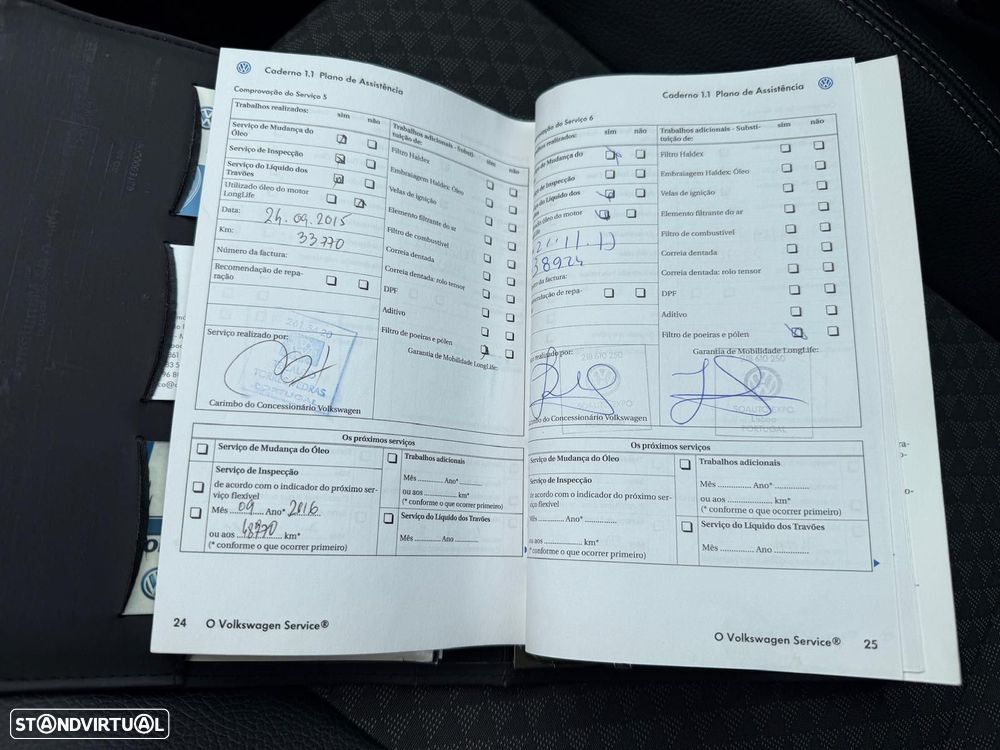 Caderno 1.1 Plano de Assistência
Comprovação do Serviço 5
Trabalhos realizados: sim não
Serviço de Mudança do Óleo
Serviço de Inspecção
Serviço do Líquido dos Travões
Utilizado óleo do motor LongLife
Data: 24.09.2015
Km: 33770
Número da factura:
Recomendação de repa-
ração
Serviço realizado por:
Carimbo do Concessionário Volkswagen
Trabalhos adicionais - Substi-
tuição de: sim não
Filtro Haldex
Embraiagem Haldex: Óleo
Velas de ignição
Elemento filtrante do ar
Filtro de combustível
Correia dentada
Correia dentada: rolo tensor
DPF
Aditivo
Filtro de poeiras e pólen
Garantia de Mobilidade LongLife:
TORRES VEDRAS
PORTUGAL
Os próximos serviços
Serviço de Mudança do Óleo
Serviço de Inspecção
de acordo com o indicador do próximo ser-
viço flexível
Mês 09 Ano* 2016
ou aos 48770 km*
(* conforme o que ocorrer primeiro)
Trabalhos adicionais
Mês .......... Ano* ..........
ou aos .................. km*
(* conforme o que ocorrer primeiro)
Serviço do Líquido dos Travões
Mês ............... Ano ..........
24 O Volkswagen Service®
Caderno 1.1 Plano de Assistência
ovação do Serviço 6
alhos realizados: sim não
de Mudança do
de Inspecção
do Líquido dos
do óleo do motor
38924
ro da factura:
endação de repa-
realizado por:
imbo do Concessionário Volkswagen
Trabalhos adicionais - Substi-
tuição de: sim não
Filtro Haldex
Embraiagem Haldex: Óleo
Velas de ignição
Elemento filtrante do ar
Filtro de combustível
Correia dentada
Correia dentada: rolo tensor
DPF
Aditivo
Filtro de poeiras e pólen
Garantia de Mobilidade LongLife:
218 610 250
SOAUTO EXPO
218 610 250
SOAUTO EXPO
PORTUGAL
Os próximos serviços
Serviço de Mudança do Óleo
Serviço de Inspecção
de acordo com o indicador do próximo ser-
viço flexível
Mês ............. Ano* ...............
ou aos ....................... km*
(* conforme o que ocorrer primeiro)
Trabalhos adicionais
Mês ............... Ano* ...............
ou aos ........................ km*
(* conforme o que ocorrer primeiro)
Serviço do Líquido dos Travões
Mês ............... Ano ...............
O Volkswagen Service® 25
STANDVIRTUAL